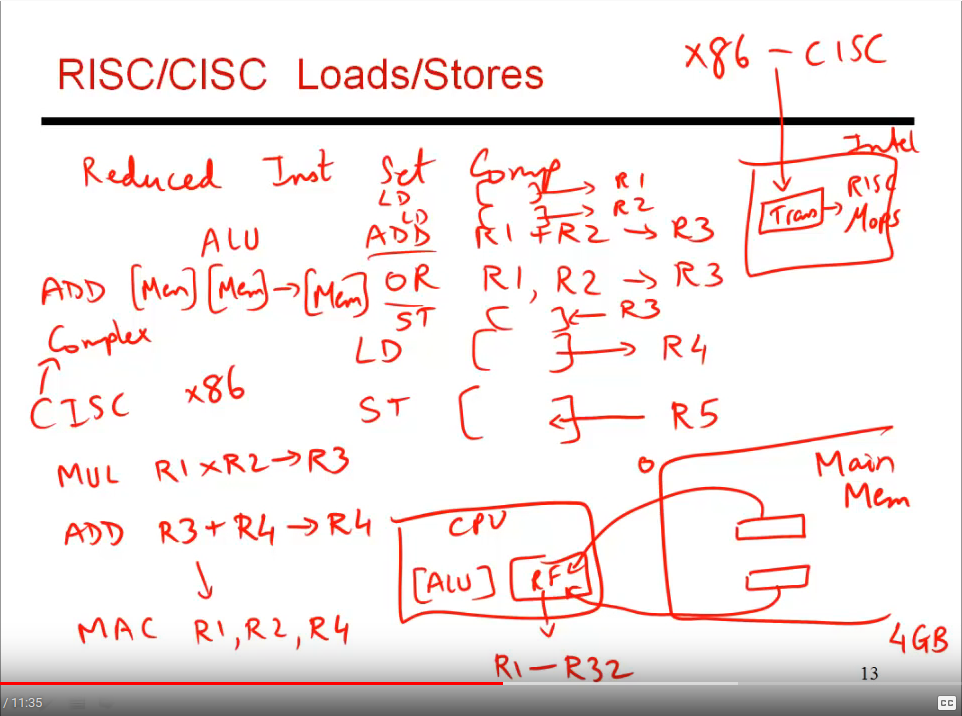 RISC/CISC Loads/Stores
x86 - CISC
Intel
Trans → RISC
Mops
Reduced Inst Set Comp
LD [ ] → R1
LD [ ] → R2
ALU ADD R1 + R2 → R3
ADD [Mem] [Mem] → [Mem] OR R1, R2 → R3
ST [ ] ← R3
Complex
LD [ ] → R4
CISC x86
ST [ ] ← R5
MUL R1 x R2 → R3
ADD R3 + R4 → R4
MAC R1, R2, R4
CPU
[ALU] RF
R1 - R32
0
Main
Mem
4GB
13
/ 11:35
CC